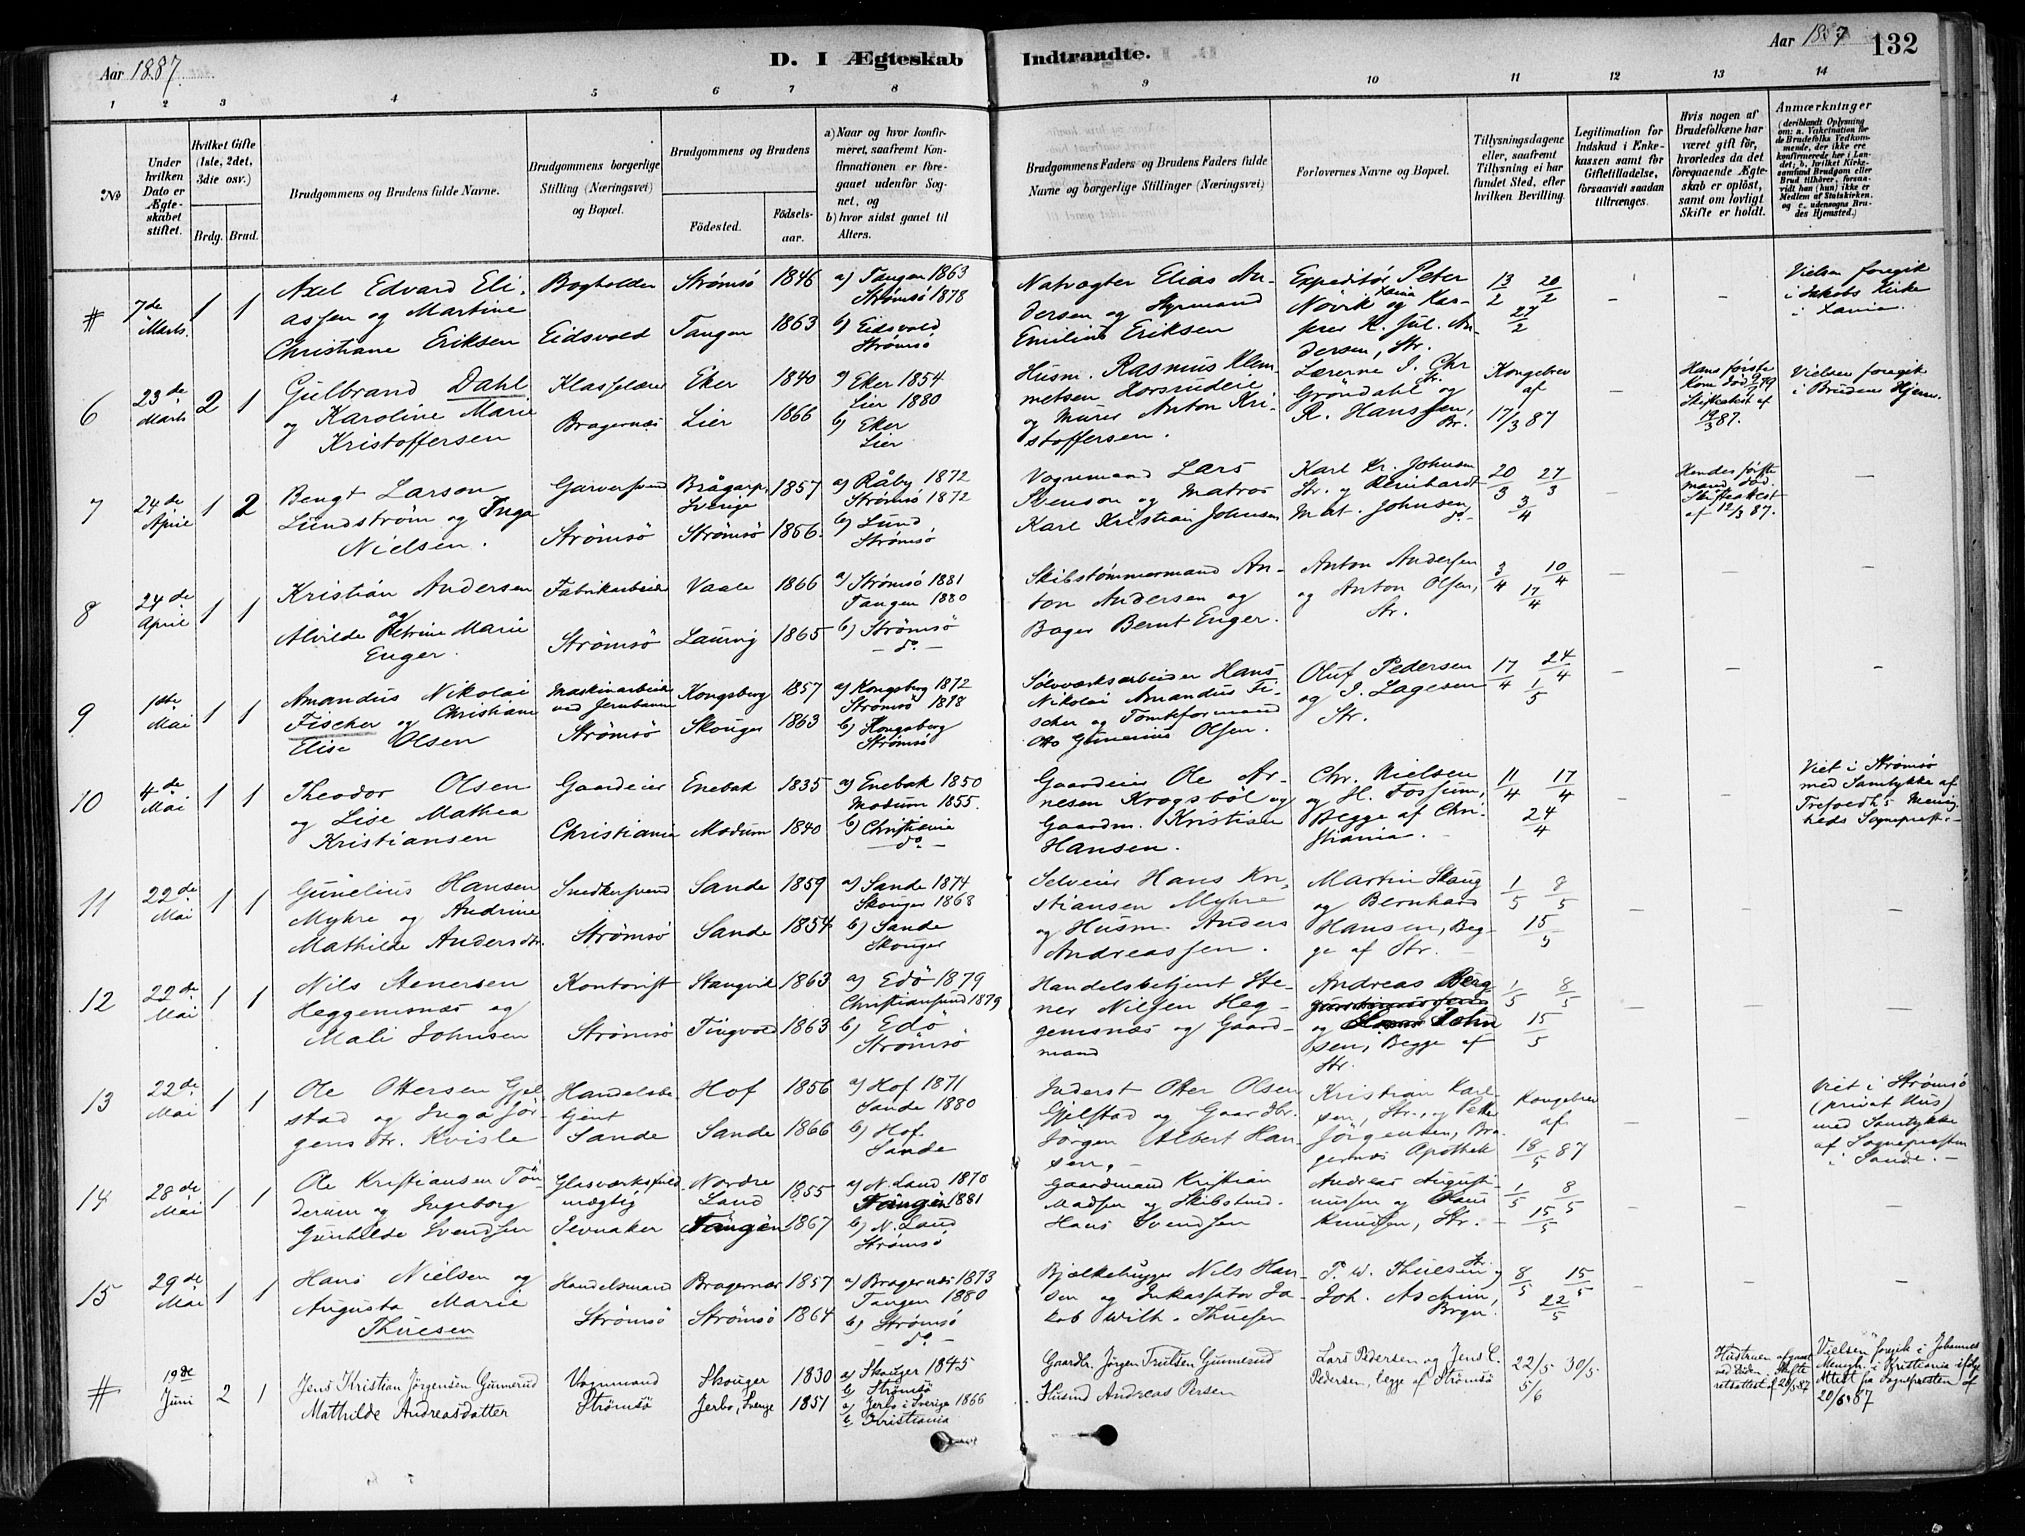 Aar 1887.
D. I Ægteskab Indtraadte.
Aar 1887
132
1 2 3 4 5 6 7 8 9 10 11 12 13 14
No
Under hvilken Dato er Ægteskabet stiftet.
Hvilket Gifte (1ste, 2det, 3die osv.)
Brdg. Brud.
Brudgommens og Brudens fulde Navne.
Brudgommens borgerlige Stilling (Næringsvei) og Bopæl.
Brudgommens og Brudens
Fødested.
Fødselsaar.
a) Naar og hvor konfirmeret, saafremt Konfirmationen er foregaaet udenfor Sognet, og
b) hvor sidst gaaet til Alters.
Brudgommens Faders og Brudens Faders fulde Navne og borgerlige Stillinger (Næringsvei)
Forlovernes Navne og Bopæl.
Tillysningsdagene eller, saafremt Tillysning ei har fundet Sted, efter hvilken Bevilling.
Legitimation for Indskud i Enkekassen samt for Giftetilladelse, forsaavidt saadan tiltrænges.
Hvis nogen af Brudefolkene har været gift før, hvorledes da det foregaaende Ægteskab er opløst, samt om lovligt Skifte er holdt.
Anmærkninger
(deriblandt Oplysning om: a. Vakcination for de Brudefolks Vedkommende, der ikke ere konfirmerede her i Landet; b. hvilket Kirkesamfund Brudgom eller Brud tilhører, forsaavidt han (hun) ikke er Medlem af Statskirken, og c. udensogns Brudes Hjemsted.)
# 7de Marts. 1 1
Axel Edvard Eliassen og Martine Christiane Eriksen
Bogholder Eidsvold
Strømsö 1846
Tangen 1863
a) Tangen 1863
Strømsö 1878
b) Eidsvold
Strømsö
Natvagter Elias Andersen og Styrmand Emilius Eriksen
Expeditör Peter Növik og Kasserer K. Jul. Andersen, Str.
13/2 20/2 27/2
Vielsen foregik i Jakobs Kirke i Xania.
6 23de Marts 2 1
Gulbrand Dahl og Karoline Marie Kristoffersen
Klasselærer Bragernæs
Eker 1840
Lier 1866
a) Eker 1854
Lier 1880
b) Eker
Lier
Husm. Rasmus Klemmetsen Horsrudeie og Murer Anton Kristoffersen.
Lærerne J. Chr Gröndahl Str. og R. Hanssen, Br.
Kongebrev af 17/3 87
Hans første Kone död Skifteattest af 19/3 87.
Vielsen foregik i Brudens Hjem.
7 24de April 1 2
Bengt Larson Lundström og Inga Nielsen.
Garversvend Strömsö
Brågarp, Sverige 1857
Strömsö 1856.
a) Råby 1872
Strömsö 1872
b) Lund
Strömsö
Vognmand Lars Svenson og Matros Karl Kristian Johnsen
Karl Kr. Johnsen Str. og Reinhardt Mat. Johnsen do.
20/3 27/3 3/4
Hendes første mand död. Skifteattest af 12/3 87.
8 24de April 1 1
Kristian Andersen og Alvilde Petrine Marie Enger.
Fabrikarbeider Strömsö
Vaale 1866
Laurvig 1865
a) Strömsö 1881
Tangen 1880
b) Strömsö
do
Skibstømmermand Anton Andersen og Bager Bernt Enger.
Anton Andersen og Anton Olsen, Str.
3/4 10/4 17/4
9 1ste Mai 1 1
Amandus Nikolai Fischer og Christiane Elise Olsen
Maskinarbeider ved Jernbanen Strömsö
Kongsberg 1857
Skouger 1863
a) Kongsberg 1872
Strömsö 1878
b) Kongsberg
Strömsö
Sölvværksarbeider Hans Nikolai Amandus Fischer og Tomteformand Otto Gunerius Olsen.
Oluf Pedersen og J. Lagesen Str.
17/4 24/4 1/5
10 4de Mai 1 1
Theodor Olsen og Lise Mathea Kristiansen
Gaardeier Christiania
Enebak 1835
Modum 1840
a) Enebak 1850
Modum 1855.
b) Christiania
do
Gaardeier Ole Arnesen Krogsböl og Gaardm. Kristian Hansen.
Chr. Nielsen og H. Fossum, Begge af Christiania.
11/4 17/4 24/4
Viet i Strömsö med Samtykke af Trefoldh's Menigheds Sognepræst.
11 22de Mai 1 1
Gunelius Hansen Myhre og Andrine Mathilde Andersdtr.
Snedkersvend Strömsö
Sande 1859
Sande 1854
a) Sande 1874
Skouger 1868
b) Sande
Skouger
Selveier Hans Kristiansen Myhre og Husm. Anders Andreassen.
Martin Skaug og Bernhard Hansen, Begge af Str.
1/5 8/5 15/5
12 22de Mai 1 1
Nils Stenersen Heggemsnæs og Mali Johnsen
Kontorist Strömsö
Stangvik 1863
Tingvold 1863
a) Edö 1879
Christiansund 1879
b) Edö
Strömsö
Handelsbetjent Stener Nilsen Heggemsnæs og Gaardmand
Andreas Berg og Johnsen, Begge af Str.
1/5 8/5 15/5
13 22de Mai 1 1
Ole Ottersen Gjelstad og Inga Jörgensdtr. Kvisle
Handelsbetjent Sande
Hof 1856
Sande 1866
a) Hof 1871
Sande 1880
b) Hof.
Sande
Inderst Otter Olsen Gjelstad og Gaardbr. Jörgen Albert Hansen.
Kristian Karlsen, Str., og Petter Jörgensen, Bragernæs Apothek
Kongebrev af 18/5 87
Viet i Strömsö (privat Hus) med Samtykke af Sognepræsten i Sande.
14 28de Mai 1 1
Ole Kristiansen Tönderum og Ingeborg Gunhilde Svendsen
Glasværksfuldmægtig Jevnaker
Nordre Land 1855
Tangen 1867
a) N. Land 1870
Tangen 1881
b) N. Land
Strömsö
Gaardmand Kristian Madsen og Skibstmd. Hans Svendsen
Andreas Augustinussen og Claus Knudsen, Str.
1/5 8/5 15/5
15 29de Mai 1 1
Hans Nielsen og Augusta Marie Thuesen
Handelsmand Strömsö
Bragernæs 1857
Strömsö 1864
a) Bragernæs 1873
Tangen 1880
b) Strömsö
do
Bjælkehugger Nils Hansen og Inkassator Jakob Wilh. Thuesen
T. W. Thuesen Str. og Joh. Aschim, Brgn.
8/5 15/5 22/5
# 19de Juni 2 1
Jens Kristian Jørgensen Gunnerud
Mathilde Andreasdatter
Vognmand Strömsö
Skouger 1830
Jerbo, Sverige 1851
a) Skouger 1845
b) Strömsö
a) Jerbo i Sverige 1866
b) Kristiania
Gaardbr. Jørgen Trulsen Gunnerud
Husmd Andreas Persen
Lars Pedersen og Jens C. Pedersen, begge af Strömsö
22/5 30/5 5/6
Hustruen afgaaet ved Döden, Skifteretsattest af 20/5 87
Vielsen foregik i Johannes Menigh. i Kristiania ifølge Attest fra Sognepræsten af 20/6 87